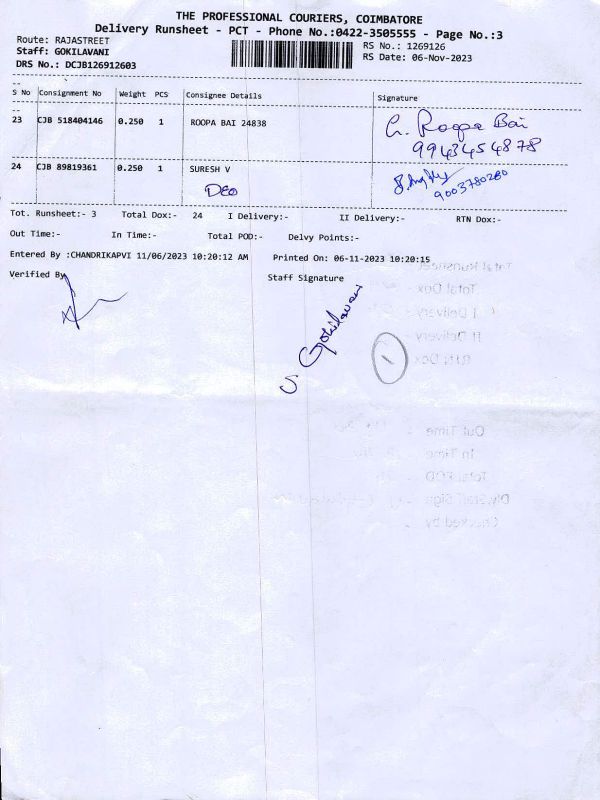 THE PROFESSIONAL COURIERS, COIMBATORE
Delivery Runsheet - PCT - Phone No.:0422-3505555 - Page No.:3
Route: RAJASTREET
RS No.: 1269126
Staff: GOKILAVANI
RS Date: 06-Nov-2023
DRS No.: DCJB126912603
S No Consignment No Weight PCS Consignee Details Signature
23 CJB 518404146 0.250 1 ROOPA BAI 24838 G. Roopa Bai
9943454878
24 CJB 89819361 0.250 1 SURESH V
DEO 9003780280
Tot. Runsheet:- 3 Total Dox:- 24 I Delivery:- II Delivery:- RTN Dox:-
Out Time:- In Time:- Total POD:- Delvy Points:-
Entered By :CHANDRIKAPVI 11/06/2023 10:20:12 AM Printed On: 06-11-2023 10:20:15
Verified By Staff Signature
S. Gokilavani
Total Runsheet
Total Dox -
I Delivery -
II Delivery -
Rtn Dox -
1
Out Time -
In Time -
Total POD -
Dly Staff Sign
Checked by